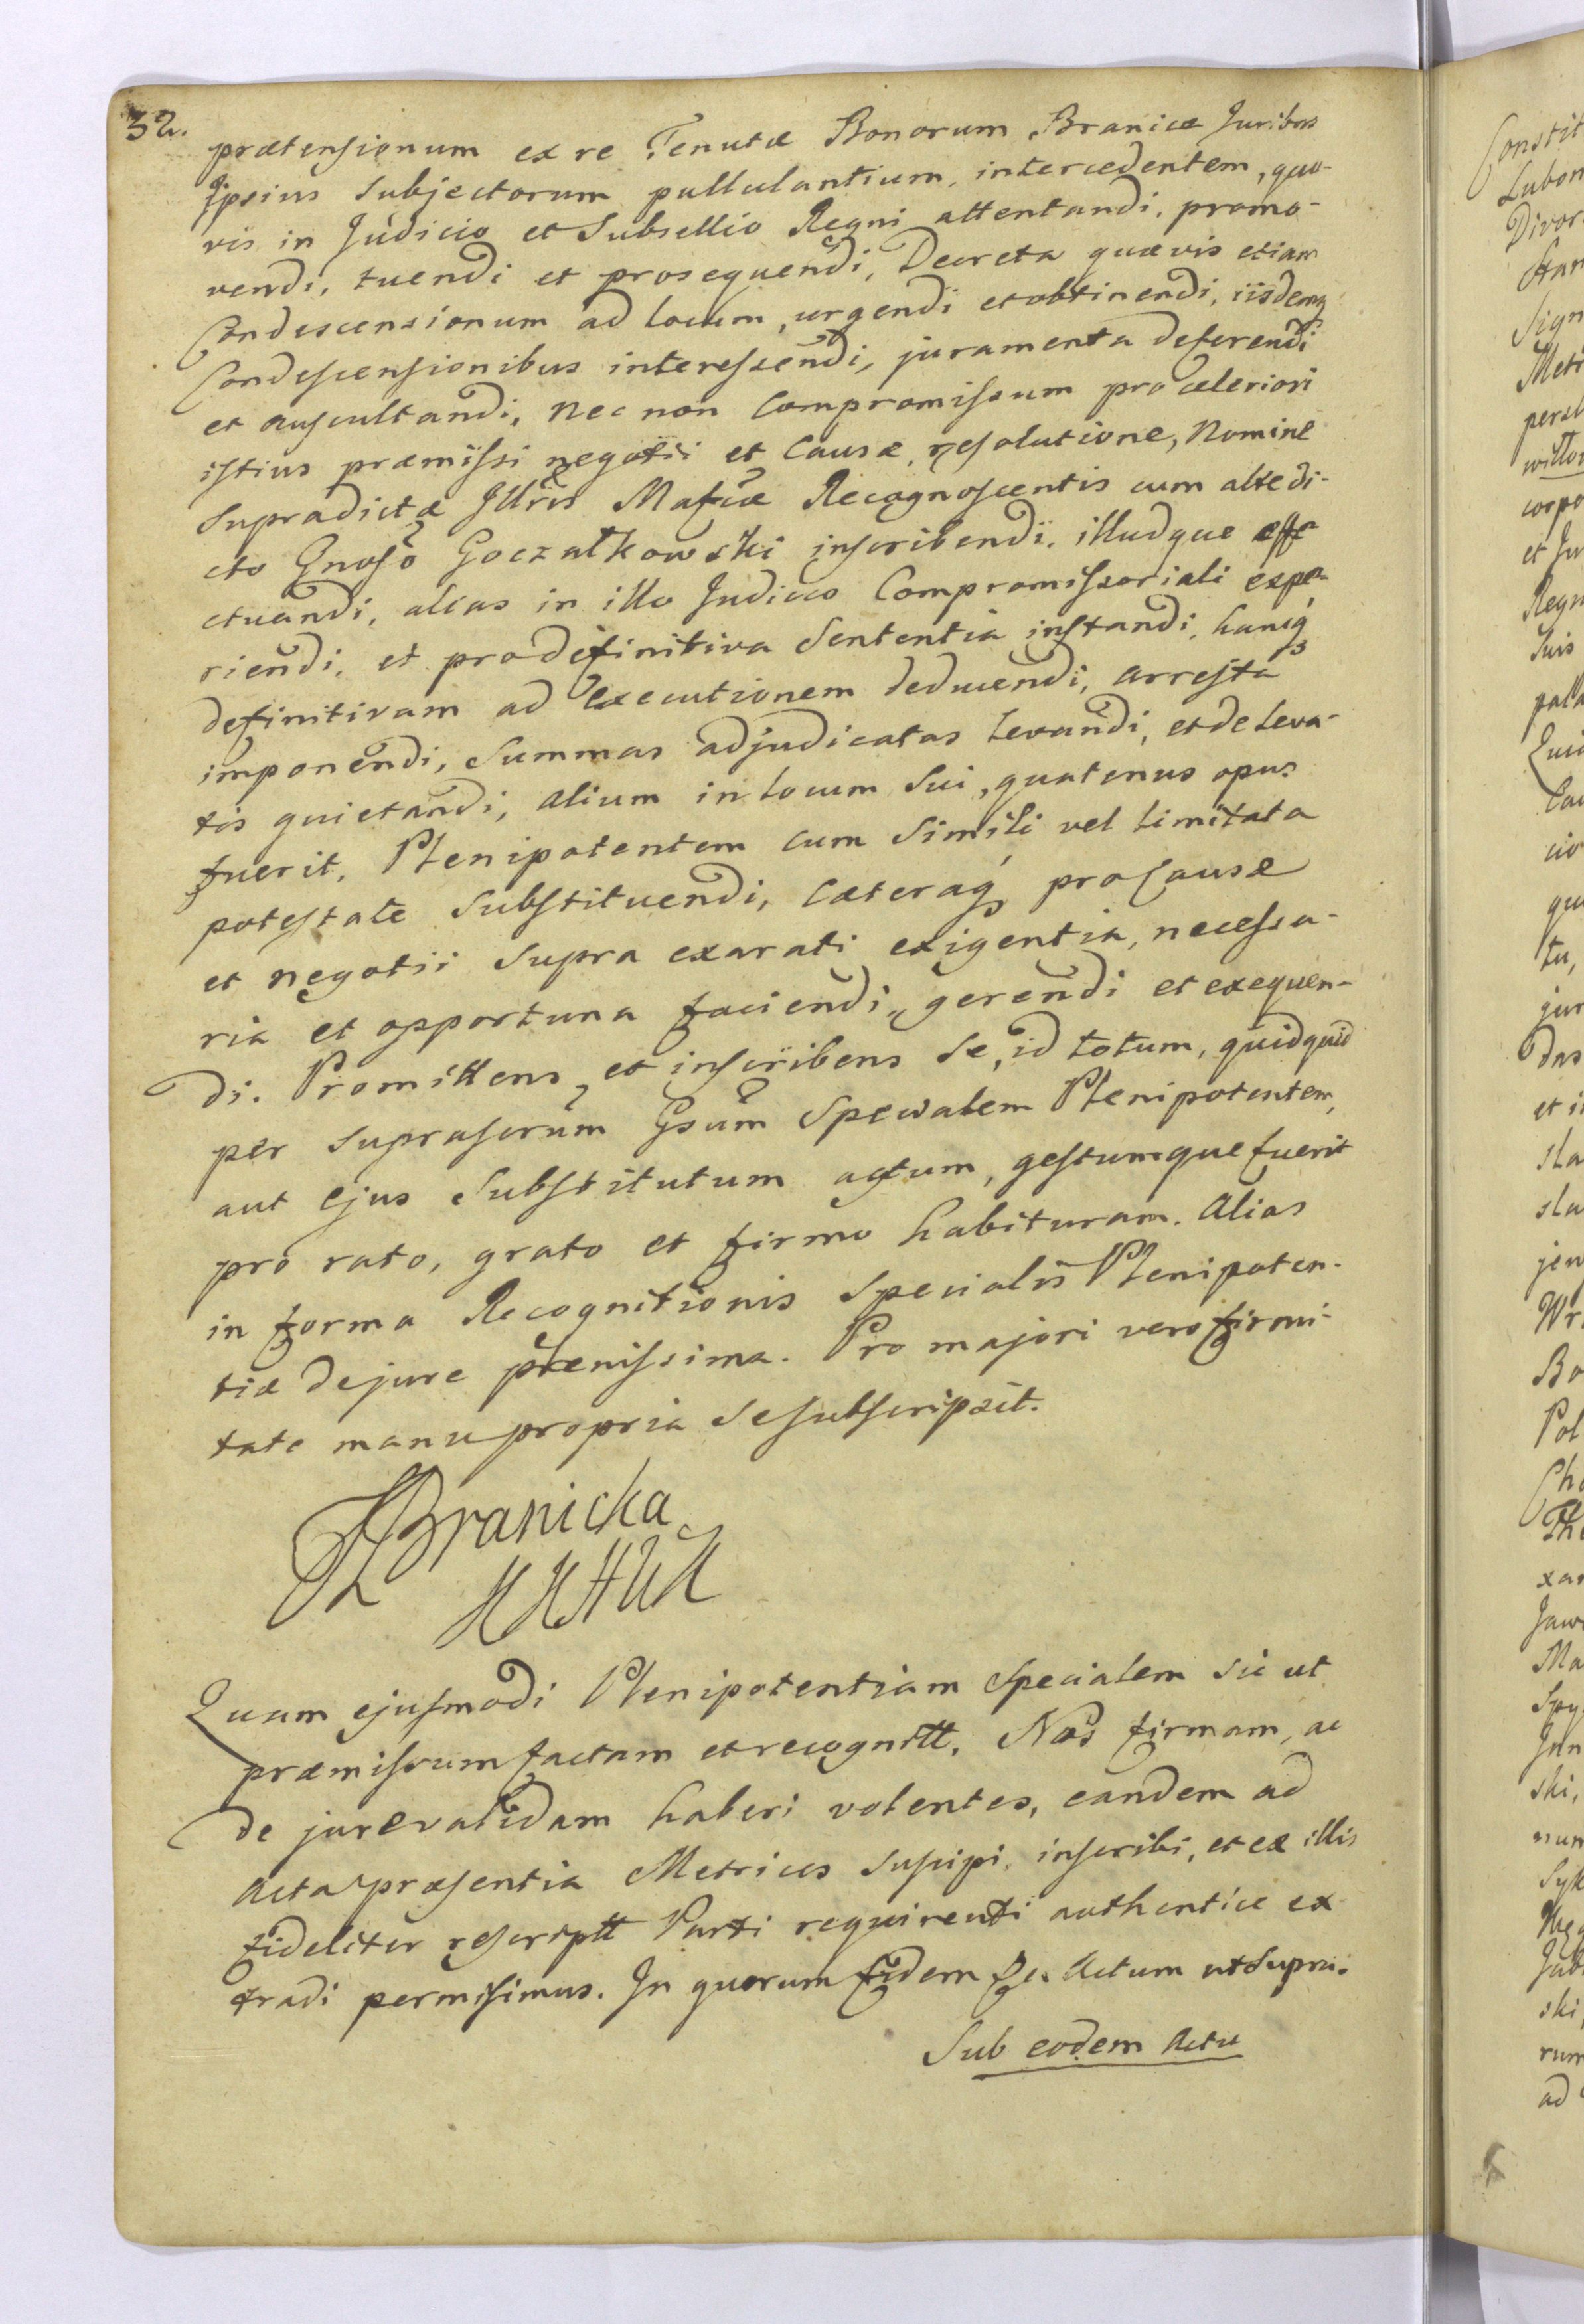 32.
prætensionum ex re Tenutæ Bonorum Branice Juribus
Ipsius Subjectorum pullulantium, intercedentem, quo-
vis in Judicio et Subsellio Regni attentandi, promo-
vendi, tuendi et prosequendi, Decreta quævis etiam
Condescensionum ad locum, urgendi et obtinendi, iisdemq
Condescensionibus interessendi, juramenta deferendi
et auscultandi, nec non Compromissum pro celeriori
istius præmissi negotii et Causæ, resolutione, Nomine
supradictæ Illris Mafcæ Recognoscentis cum altedi-
cto Gnoso Goczałkowski inscribendi, illudque effe
ctuandi, alias in illo Judicio Compromissoriali expe-
riendi, et pro definitiva Sententia instandi, hancq
definitivam ad executionem deducendi, arresta
imponendi, Summas adjudicatas levandi, et de leva-
tis quietandi, alium in locum Sui, quatenus opus
fuerit, Plenipotentem cum Simili vel limitata
potestate Substituendi, Cæteraq pro Causæ
et negotii Supra exarati exigentia, necessa-
ria et opportuna faciendi, gerendi et exequen-
di. Promittens, et inscribens Se, id totum, quidquid
per suprascrum Gsum Specialem Plenipotentem,
aut ejus Substitutum actum, gestumque fuerit
pro rato, grato et firmo habituram. Alias
in forma Recognitionis Specialis Plenipoten-
tiæ de jure plenissima. Pro majori vero firmi-
tate manu propria Se subscripsit.
Branicka
Quam ejusmodi Plenipotentiam Specialem sic ut
præmissum factam et recognitt. Nos firmam, ac
de jure validam haberi volentes, eandem ad
Acta præsentia Metrices Suscipi, inscribi, et ex illis
fideliter rescriptt Parti requirenti authentice ex
tradi permisimus. In quorum fidem Actum ut Supra.
Sub eodem Actu